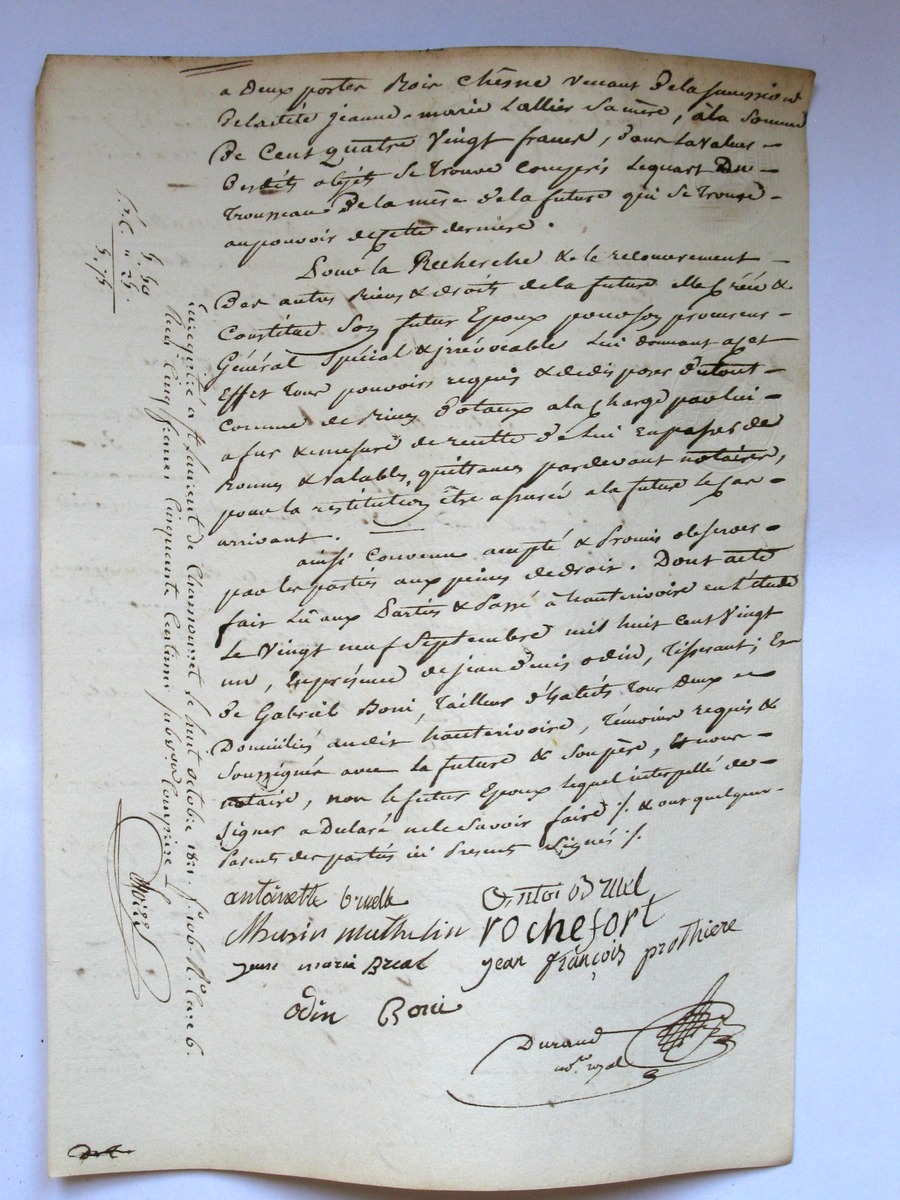 a Deux portes Bois Chêsne venant de la succession
de ladite jeanne-marie Lallier sa mère, à la somme
De Cent quatre Vingt francs, dans la valeur
Desdits objets se trouve Compris le quart Du
Trousseau de la mère de la future qui se trouve
au pouvoir de cette dernière.
Pour la Recherche & le recouvrement
Des autres Biens & droits de la future elle Créé &
Constitue Son futur Epoux pour son procureur
Général Spécial & irrévocable Lui donnant a cet
Effet tous pouvoirs requis & de disposer du tout
Comme de Biens dotaux a la Charge par lui
a fur & mesure de recette d'elui En passer de
bonnes & valables quittances pardevant notaires,
pour la restitution être assuré a la future le cas
arrivant.
ainsi Convenu accepté & Promis observer
par les parties aux peines de droit. Dont acte
fait Lû aux Parties & Passé à hauterivoire en L'étude
Le Vingt neuf Septembre mil huit cent Vingt
un, En présence de jean Denis odin, Tisserant; Et
de Gabriel Boni, Tailleur d'habits tous deux
Domiciliés audit hauterivoire, témoins requis &
Soussignés avec la future & son père, Et nous
notaire, non le futur Epoux lequel interpellé de
signer a Déclaré ne le Savoir faire /. & ont quelques
Parents des parties ici Presents Signés /.
antoinette bruelle
Bruel
mathelin rochefort
jean françois prothiere
odin Boni
Durand
not.re royal
Enregistré à St Laurent de Chamousset le huit octobre 1821. f.o 106. R.o Case 6.
Reçu Cinq francs Cinquante Centimes Subvon Comprise
5 50
5. 75